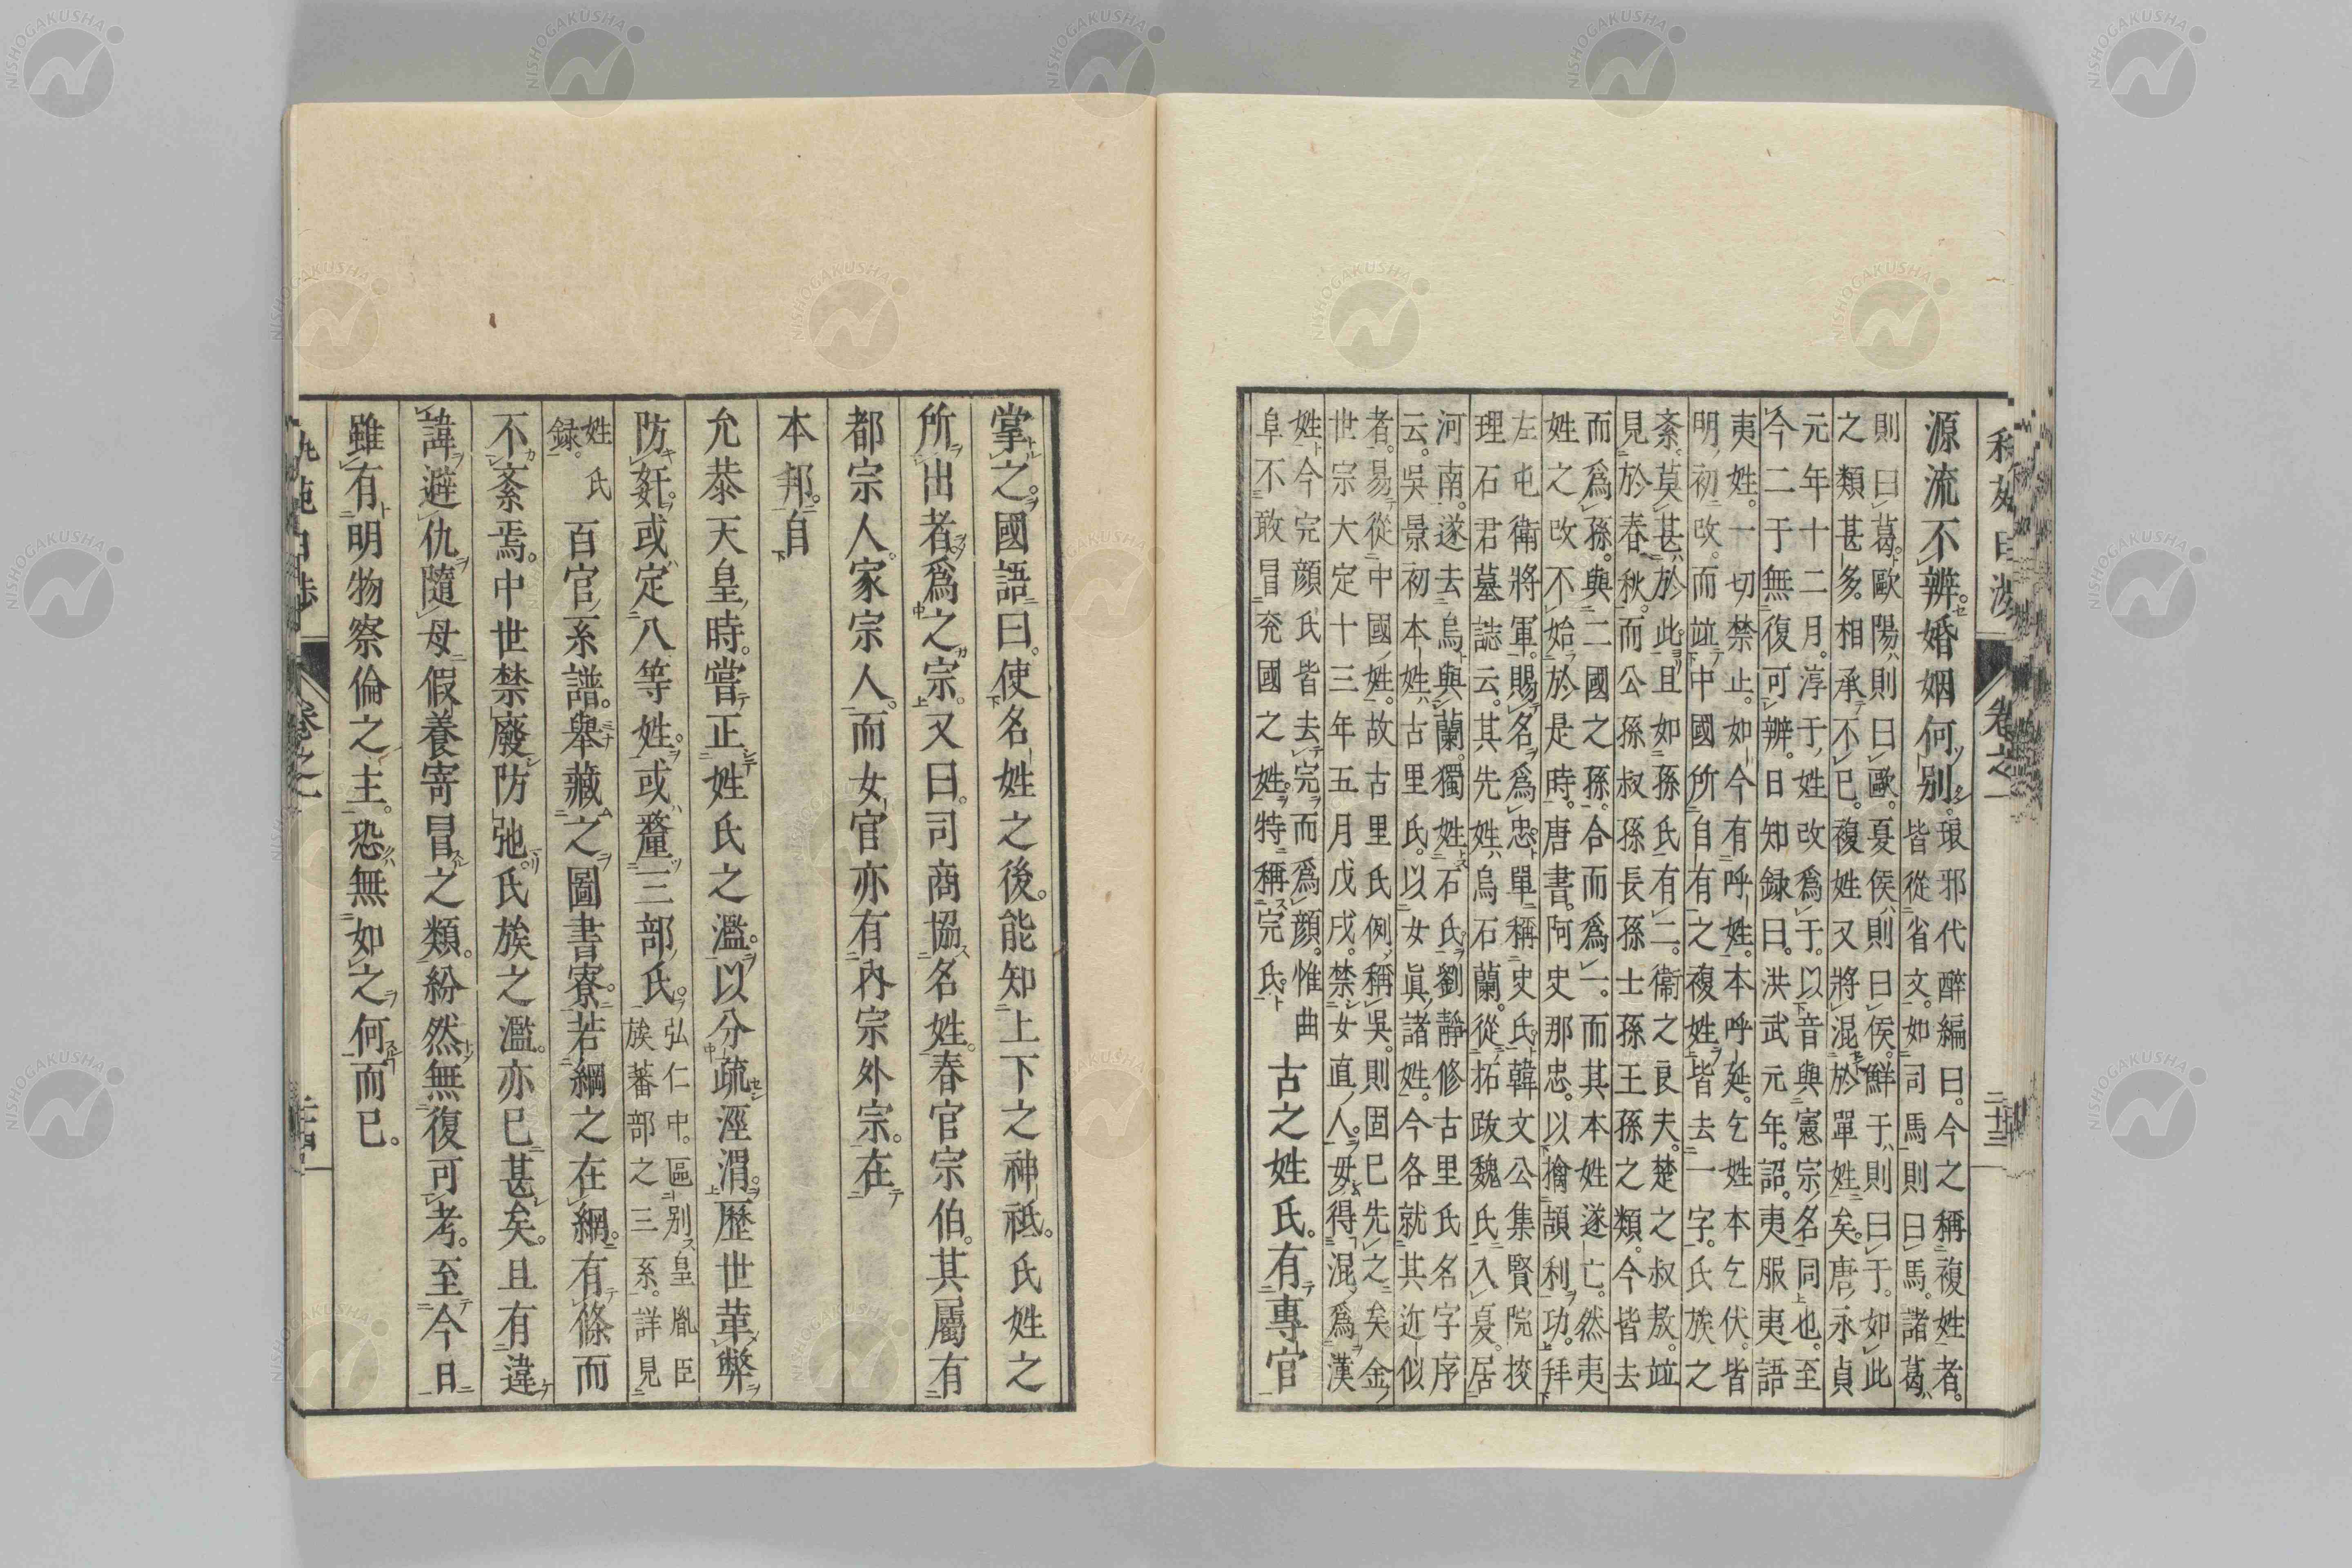 源流不辨婚姻何別。
琅邪代醉編曰。今之稱複姓者。
皆從省文。如司馬則曰馬。諸葛
則曰葛。歐陽則曰歐。夏侯則曰侯。鮮于則曰于。如此
之類甚多。相承不已。複姓又將混於單姓矣。唐永貞
元年十二月。淳于姓改爲于。以音與憲宗名同也。至
今二于無復可辨。日知録曰。洪武元年。詔夷服夷語
夷姓。一切禁止。如今有呼姓。本呼延。乞姓本乞伏。皆
明初改。而竝中國所自有之複姓皆去一字。氏族之
紊。莫甚於此。且如孫氏有二。衞之良夫。楚之叔敖。竝
見於春秋。而公孫叔孫長孫士孫王孫之類。今皆去
而爲孫。與二國之孫。合而爲一。而其本姓遂亡。然夷
姓之改。不始於是時。唐書。阿史那忠。以擒頡利功。拜
左屯衛將軍。賜名爲忠。單稱史氏。韓文公集賢院挍
理石君墓誌云。其先姓烏石蘭。從拓跋魏氏入夏。居
河南。遂去烏與蘭。獨姓石氏。劉靜修古里氏名字序
云。吳景初本姓古里氏。以女眞諸姓。今各就其近似
者。易從中國姓。故古里氏例稱吳。則固已先之矣。金
世宗大定十三年五月戊戌。禁女直人。毋得混爲漢
姓。今完顏氏皆去完而爲顏。惟曲
阜不敢冒兖國之姓。特稱完氏。
古之姓氏。有專官
卷之一
二十三
掌之。國語曰。使名姓之後。能知上下之神祇。氏姓之
所出者。爲之宗。又曰。司商協名姓。春官宗伯。其屬有
都宗人。家宗人。而女官亦有內宗外宗。在
本邦。自
允恭天皇時。嘗正姓氏之濫。以分疏涇渭。歷世革弊
防奸。或定八等姓。或釐三部氏。
弘仁中。區別皇胤臣
族蕃部之三系。詳見
姓氏
録。
百官系譜。擧藏之圖書寮。若綱之在綱。有條而
不紊焉。中世禁廢防弛。氏族之濫。亦已甚矣。且有違
諱避仇隨母假養寄冒之類。紛然無復可考。至今日
雖有明物察倫之主。恐無如之何而已。
卷之一
NISHOGAKUSHA